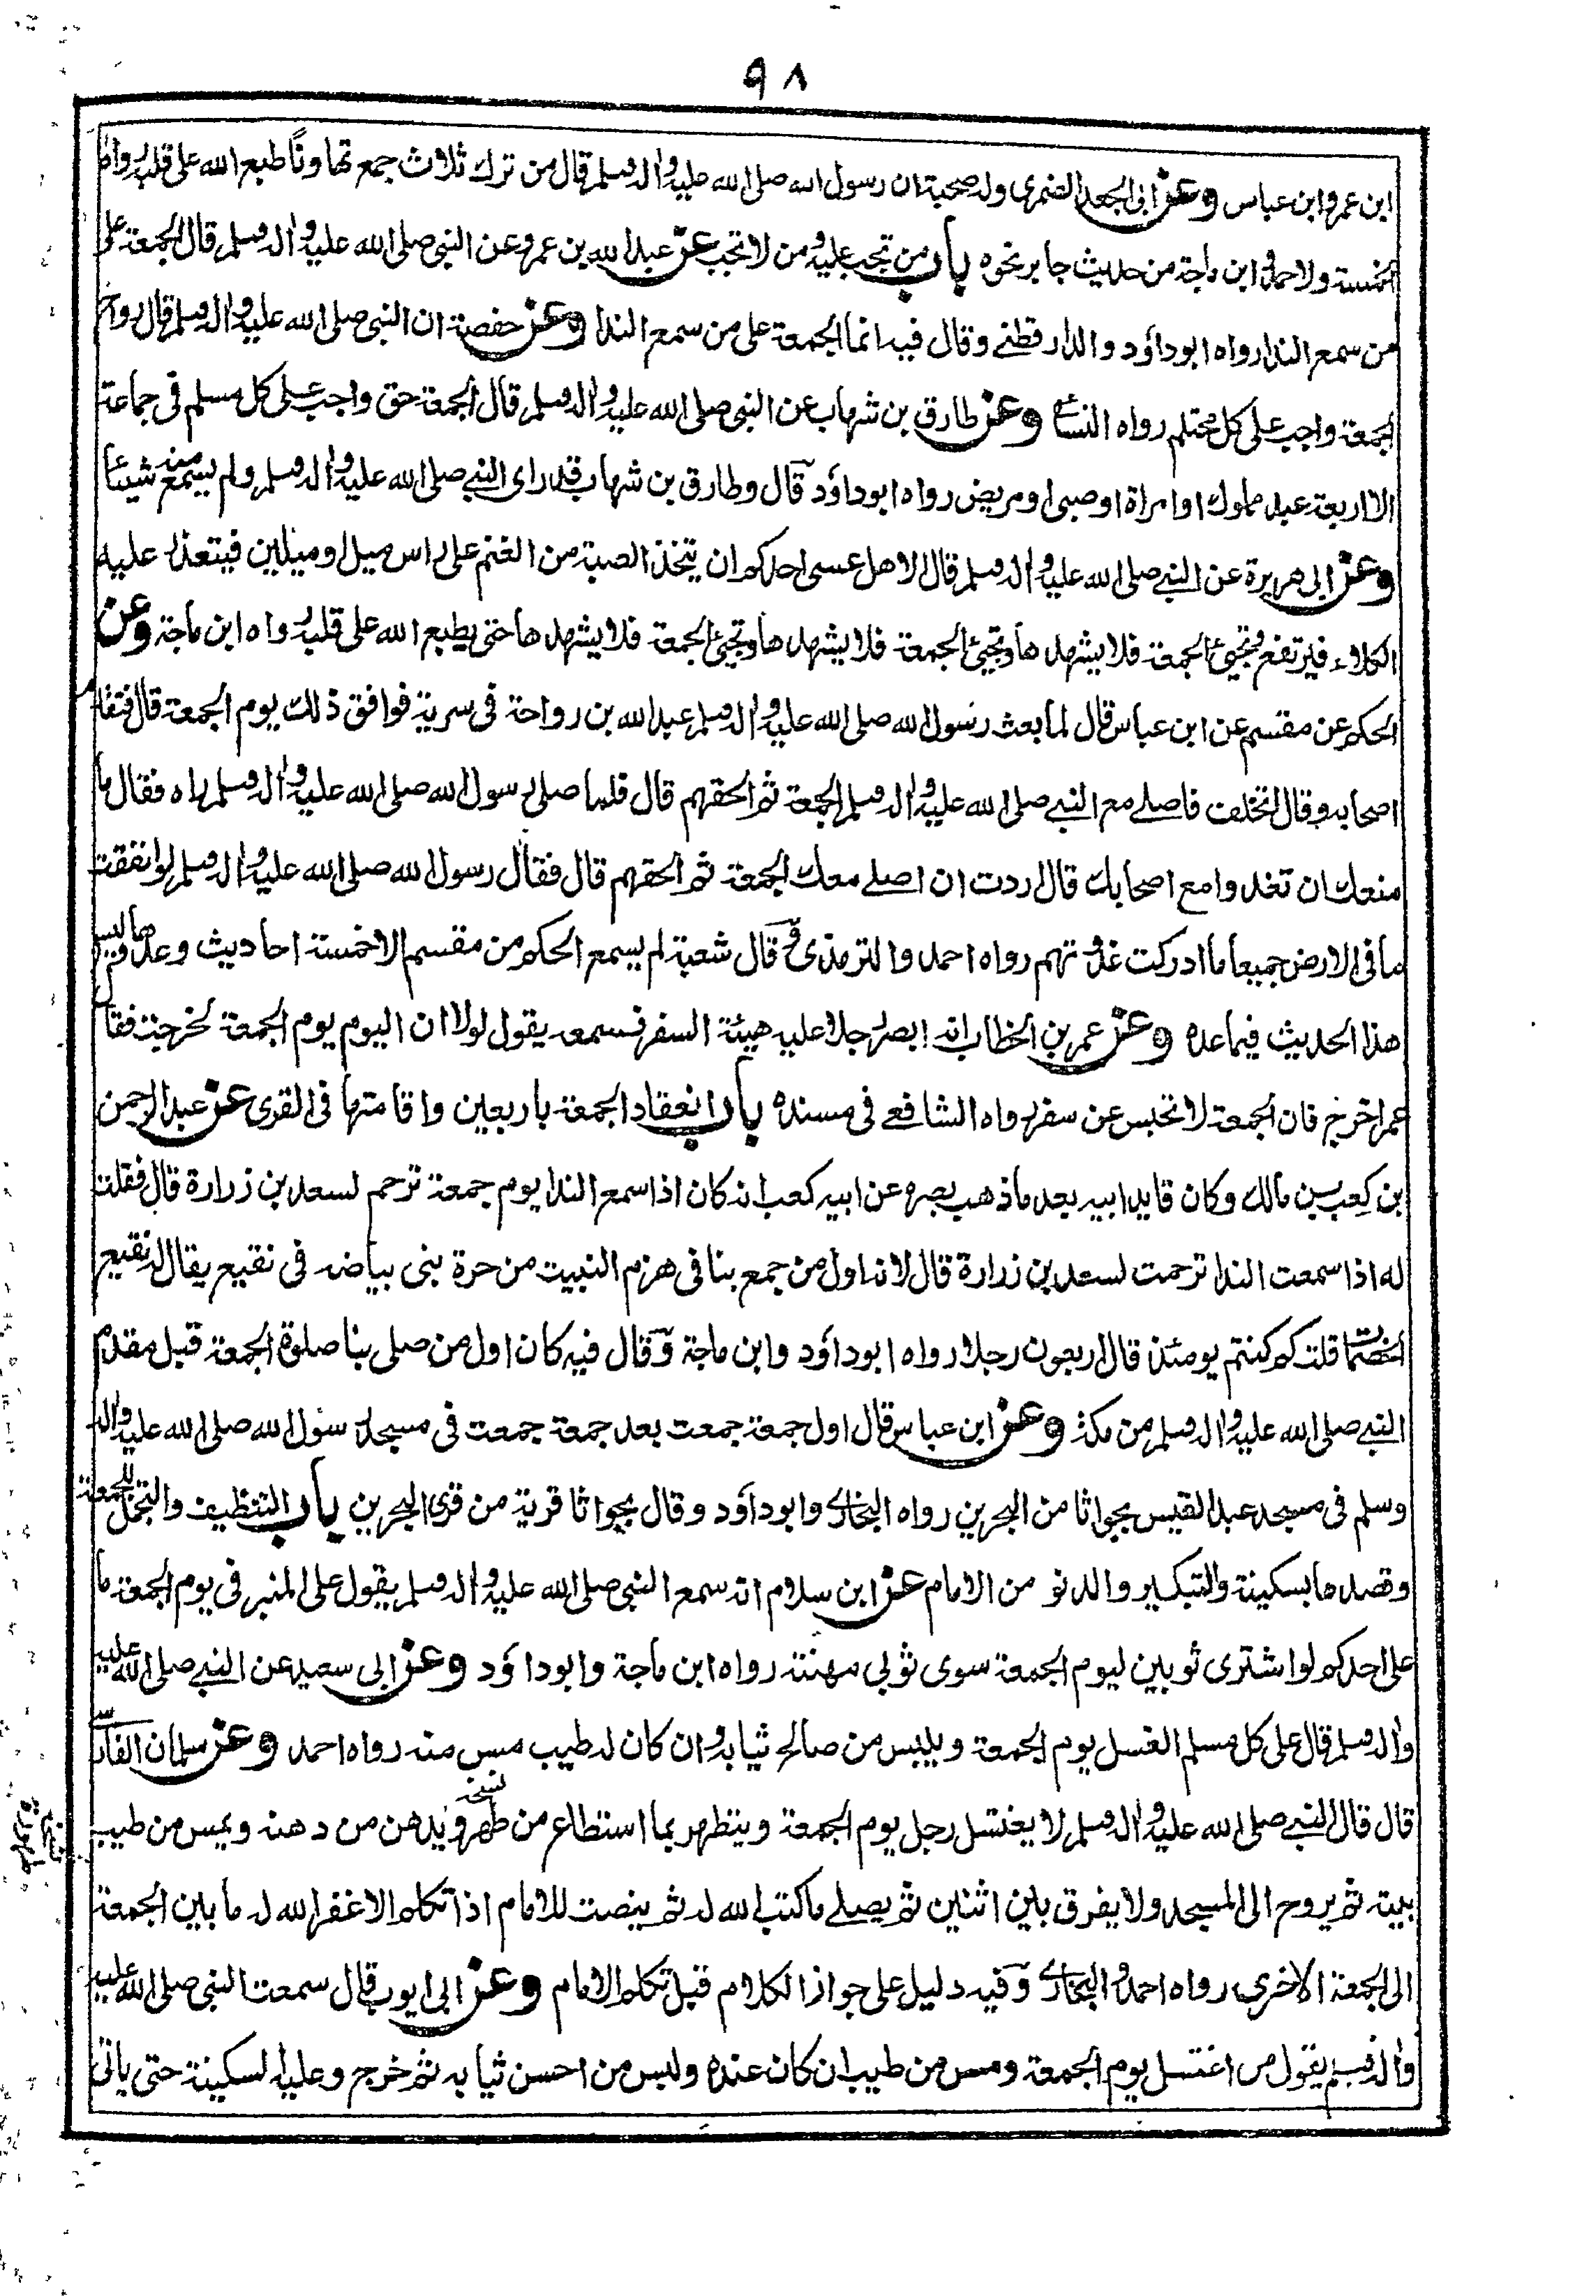 ٩٨
ابن عمر وابن عباس وعن ابى الجعد الضمرى وله صحبة ان رسول الله صلى الله عليه واله وسلم قال من ترك ثلاث جمع تهاونا طبع الله على قلبه رواه
الخمسة ولاحمد وابن ماجة من حديث جابر نحوه باب من تجب عليه ومن لا تجب عن عبد الله بن عمرو عن النبى صلى الله عليه واله وسلم قال الجمعة على
من سمع الندا رواه ابوداؤد والدارقطنے وقال فيه انما الجمعة على من سمع الندا وعن حفصة ان النبى صلى الله عليه واله وسلم قال رواح
الجمعة واجب على كل محتلم رواه النسائے وعن طارق بن شهاب عن النبى صلى الله عليه واله وسلم قال الجمعة حق واجب على كل مسلم فى جماعة
الا اربعة عبد مملوك او امراة او صبى او مريض رواه ابوداؤد وقال وطارق بن شهاب قد راى النبے صلى الله عليه واله وسلم ولم يسمع منه شيئا
وعن ابى هريرة عن النبے صلى الله عليه واله وسلم قال الا هل عسى احدكم ان يتخذ الصبة من الغنم على راس ميل او ميلين فيتعذر عليه
الكلاء فيرتفع ثم تجيئ الجمعة فلا يشهدها وتجيئ الجمعة فلا يشهدها وتجيئ الجمعة فلا يشهدها حتى يطبع الله على قلبه رواه ابن ماجة وعن
الحكم عن مقسم عن ابن عباس قال لما بعث رسول الله صلى الله عليه واله وسلم عبد الله بن رواحة فى سرية فوافق ذلك يوم الجمعة قال فتقدم
اصحابه وقال اتخلف فاصلے مع النبے صلى الله عليه واله وسلم الجمعة ثم الحقهم قال فلما صلى رسول الله صلى الله عليه واله وسلم راه فقال ما
منعك ان تغدوا مع اصحابك قال اردت ان اصلے معك الجمعة ثم الحقهم قال فقال رسول الله صلى الله عليه واله وسلم لو انفقت
ما فى الارض جميعا ما ادركت غدوتهم رواه احمد والترمذى وقال شعبة لم يسمع الحكم من مقسم الا خمسة احاديث وعدها وليس
هذا الحديث فيما عده وعن عمر بن الخطاب انه ابصر رجلا عليه هيئة السفر فسمعه يقول لولا ان اليوم يوم الجمعة لخرجت فقال
عمر اخرج فان الجمعة لا تحبس عن سفر رواه الشافعے فى مسنده باب انعقاد الجمعة باربعين واقامتها فى القرى عن عبد الرحمن
بن كعب بن مالك وكان قايد ابيه بعد ما ذهب بصره عن ابيه كعب انه كان اذا سمع الندا يوم جمعة ترحم لسعد بن زرارة قال فقلت
له اذا سمعت الندا ترحمت لسعد بن زرارة قال لانه اول من جمع بنا فى هزم النبيت من حرة بنى بياضه فى نقيع يقال له نقيع
الخضمات قلت كم كنتم يومئذ قال اربعون رجلا رواه ابوداؤد وابن ماجة وقال فيه كان اول من صلى بنا صلوة الجمعة قبل مقدم
النبے صلى الله عليه واله وسلم من مكة وعن ابن عباس قال اول جمعة جمعت بعد جمعة جمعت فى مسجد رسول الله صلى الله عليه واله
وسلم فى مسجد عبد القيس بجواثا من البحرين رواه البخارے وابوداؤد وقال بجواثا قرية من قرى البحرين باب التنظيف والتجمل للجمعة
وقصدها بسكينة والتبكير والدنو من الامام عن ابن سلام انه سمع النبى صلى الله عليه واله وسلم يقول على المنبر فى يوم الجمعة ما
على احدكم لو اشترى ثوبين ليوم الجمعة سوى ثوبى مهنته رواه ابن ماجة وابوداؤد وعن ابى سعيد عن النبے صلى الله عليه
واله وسلم قال على كل مسلم الغسل يوم الجمعة ويلبس من صالح ثيابه وان كان له طيب مس منه رواه احمد وعن سلمان الفارسے
قال قال النبے صلى الله عليه واله وسلم لا يغتسل رجل يوم الجمعة ويتطهر بما استطاع من طهر نسخه ويدهن من دهنه ويمس من طيب
بيته ثم يروح الى المسجد ولا يفرق بين اثنين ثم يصلے ما كتب الله له ثم ينصت للامام اذا تكلم الا غفر الله له ما بين الجمعة
الى الجمعة الاخرى رواه احمد والبخارے وفيه دليل على جواز الكلام قبل تكلم الامام وعن ابى ايوب قال سمعت النبى صلى الله عليه
واله وسلم يقول من اغتسل يوم الجمعة ومس من طيب ان كان عنده ولبس من احسن ثيابه ثم خرج وعليه السكينة حتى ياتى